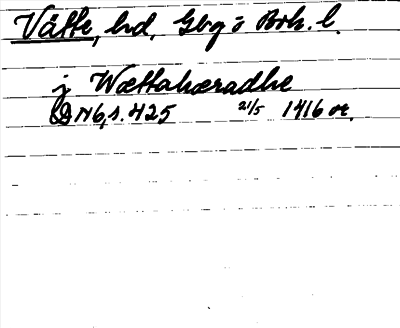 Vätte, hd, Gbg o Boh. l.
j Wættahæradhe
SD N6, s. 425 21/5 1416 or.